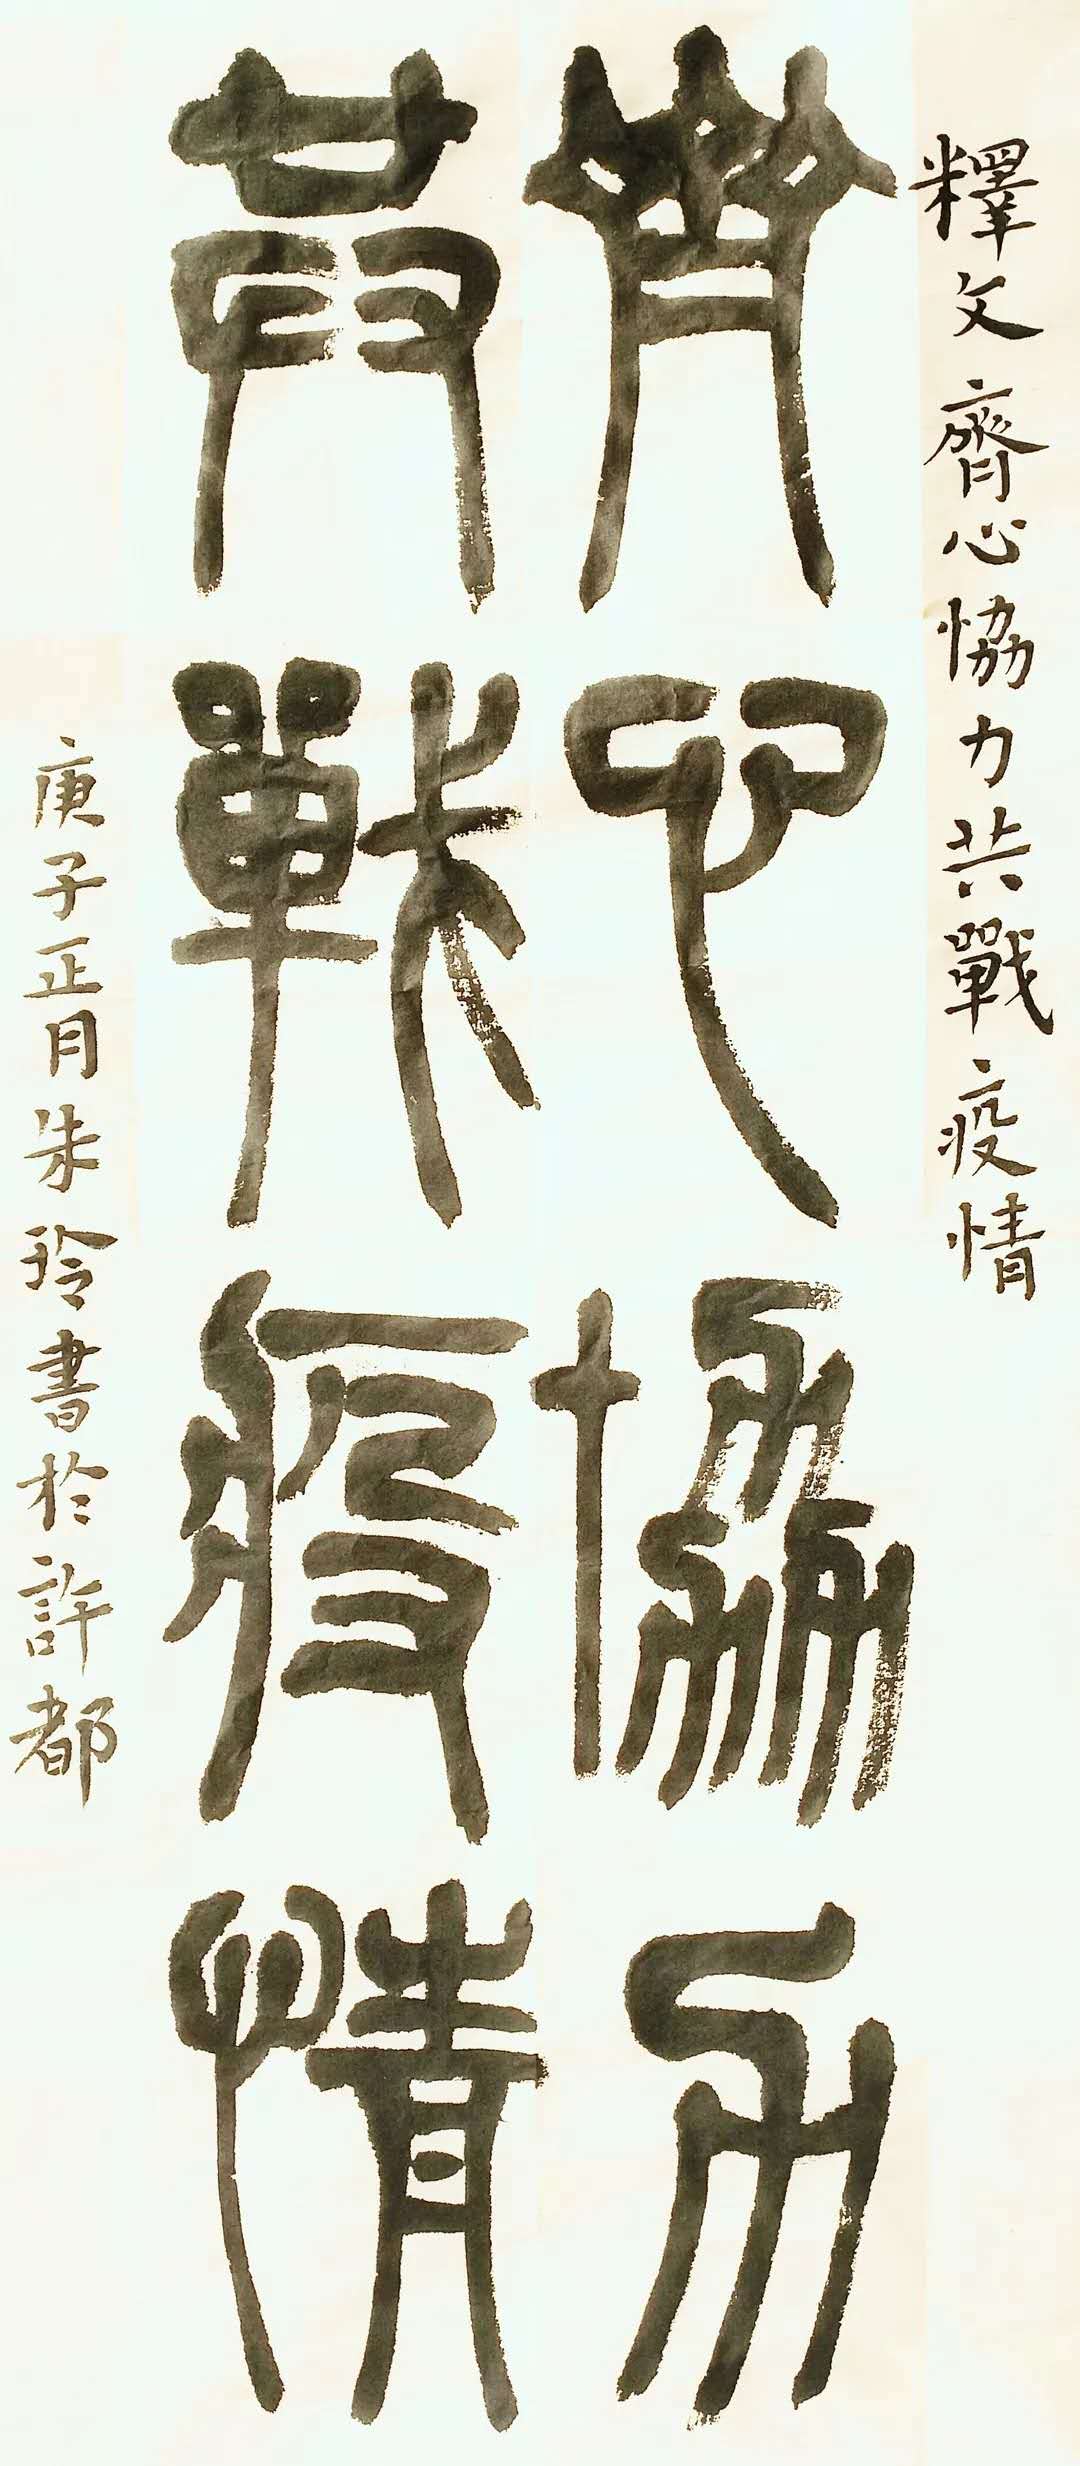 釋文齊心恊力共戰疫情
齊心協力
共戰疫情
庚子正月朱玲書於許都